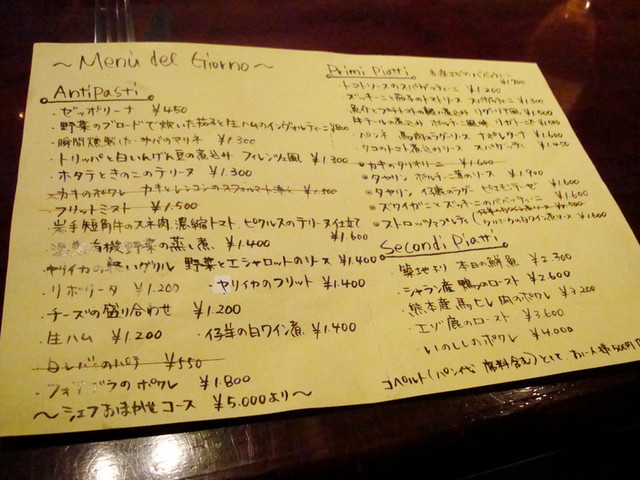 ~Menu del Giorno~
Antipasti
・ゼッポリーナ ¥450
・野菜のブロードで炊いた茄子と生ハムのインヴォルティーニ ¥800
・瞬間燻製した サバのマリネ ¥1.300
・トリッパと白いんげん豆の煮込み フィレンツェ風 ¥1.300
・ホタテときのこのテリーヌ ¥1.300
・カキのポワレ カキとレンコンのスフォルマート添え ¥1.500
・フリットミスト ¥1.500
・岩手短角牛のスネ肉、濃縮トマト、ピクルスのテリーヌ仕立て ¥1.600
有機野菜の蒸し煮 ¥1.400
・ヤリイカの軽いグリル 野菜とエシャロットのソース ¥1.400
・リボリータ ¥1.200 ・ヤリイカのフリット ¥1.400
・チーズの盛り合わせ ¥1.200
・生ハム ¥1.200 ・仔羊の白ワイン煮 ¥1.400
・白レバーのパテ ¥550
・フォアグラのポワレ ¥1.800
~シェフおまかせコース ¥5.000より~
Primi Piatti
・トマトソースのスパゲッティーニ ¥1.200
・ズッキーニと茄子のトマトソース スパゲッティーニ ¥1.300
¥1.500
・ペンネ 馬肉のラグーソース ナポレターナ ¥1.600
・タコのトマト煮込みのソース スパゲッティ ¥1.400
・カキのタリオリーニ ¥1.600
・タヤリン ポルチーニ茸のソース ¥1.900
・タヤリン 仔鴨のラグー ピエモンテーゼ ¥1.600
・ズワイガニとズッキーニのパパッティーニ ¥1.600
・ストロッツァプレティ ¥1.600
Secondi Piatti
・築地より 本日の鮮魚 ¥2.300
・シャラン産 鴨のロースト ¥2.600
・熊本産 馬ヒレ肉のポワレ ¥3.200
・エゾ鹿のロースト ¥3.600
・いのししのポワレ ¥4.000
コペルト(パン代 席料含む)として お一人様500円